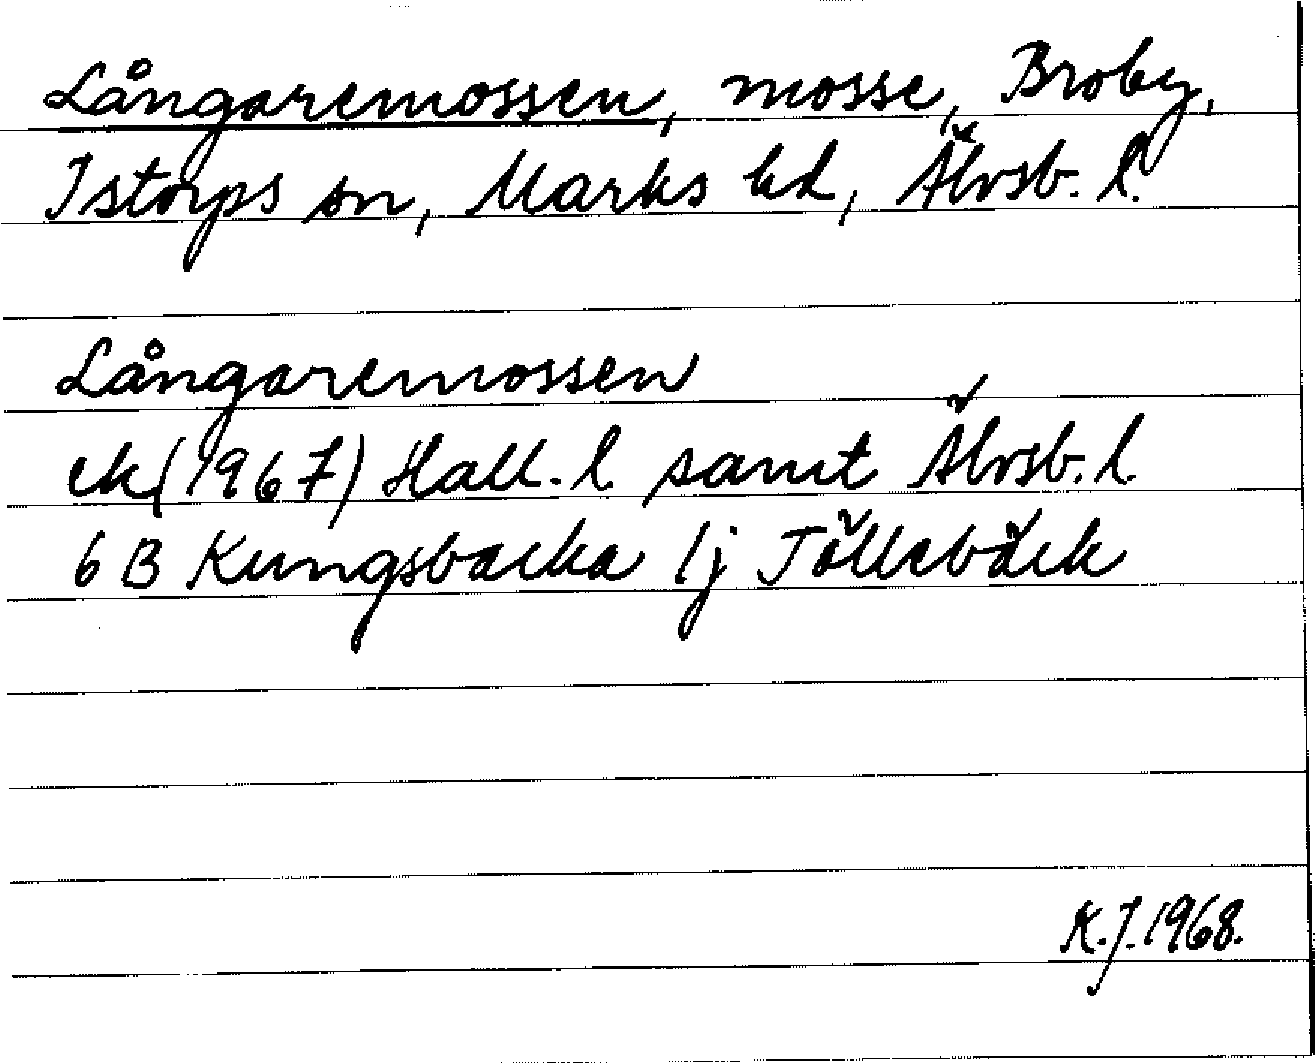 Långaremossen, mosse, Broby,
Istorps sn, Marks hd, Älvsb. l.
Långaremossen
ek (1967) Hall. l. samt Älvsb. l.
6 B Kungsbacka 1j Töllebäck
K.J. 1968.